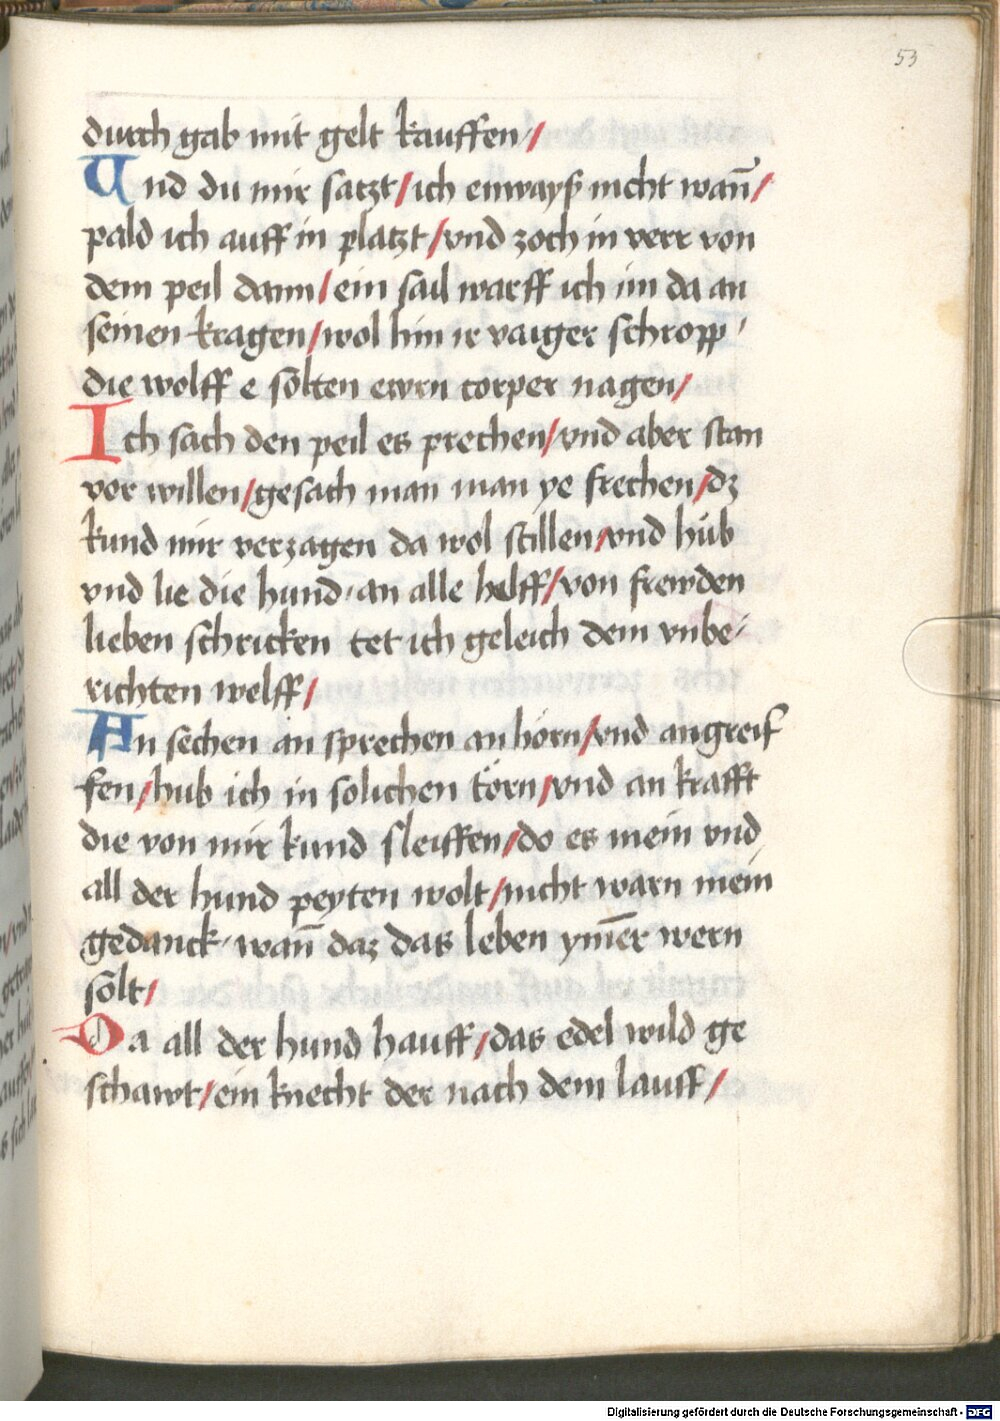 53
durch gab mit gelt kauffen /
Und du mir satzt / ich enwayß nicht wañ /
pald ich auff in platzt / vnd zoch in verr von
dem peil dann / ein sail warff ich im da an
seinen kragen / wol hin ir vaiger schropp /
die wolff e solten ewrn corper nagen /
Ich sach den peil es prechen / vnd aber stan
vor willen / gesach man man ye frechen / dz
kund mir verzagen da wol stillen / vnd hůb
vnd lie die hund · an alle helff / von frewden
lieben schricken tet ich geleich dem vnbe-
richten welff /
An sechen an sprechen an hörn / vnd angreif
fen / hub ich in solichen törn / vnd an krafft
die von mir kund sleiffen / do es mein vnd
all der hund peyten wolt / nicht warn mein
gedanck · wañ daz das leben ym̄er wern
solt /
Da all der hund hauff / das edel wild ge
schawt / ein knecht der nach dem lauff /
Digitalisierung gefördert durch die Deutsche Forschungsgemeinschaft - DFG